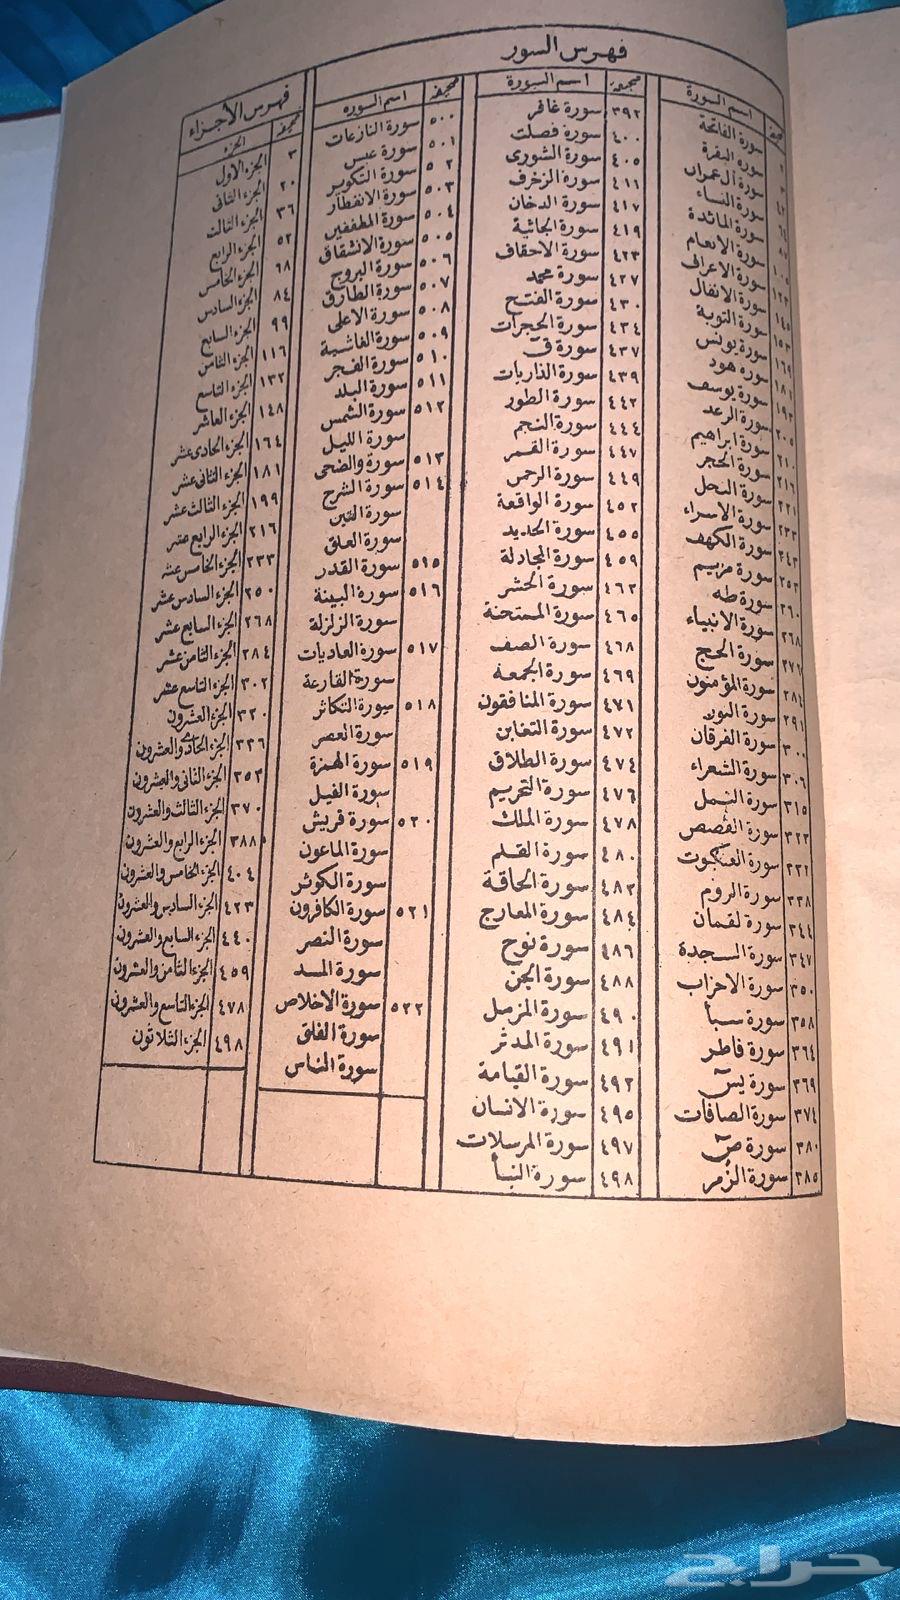 فهرس السور
اسم السورة
سورة الفاتحة
سورة البقرة
سورة آل عمران
سورة النساء
سورة المائدة ٨٧
سورة الانعام
سورة الاعراف ١٢٣
سورة الانفال ١٤٥
سورة التوبة ١٥٣
سورة يونس ١٦٩
سورة هود ١٨١
سورة يوسف ١٩٣
سورة الرعد ٢٠٥
سورة ابراهيم ٢١٠
سورة الحجر ٢١٦
سورة النحل ٢٢١
سورة الاسراء ٢٣٣
سورة الكهف ٢٤٣
سورة مريم ٢٥٣
سورة طه ٢٦٠
سورة الانبياء ٢٦٨
سورة الحج ٢٧٦
سورة المؤمنون ٢٨٤
سورة النور ٢٩١
سورة الفرقان ٣٠٠
سورة الشعراء ٣٠٦
سورة النمل ٣١٥
سورة القصص ٣٢٢
سورة العنكبوت ٣٣٢
سورة الروم ٣٣٨
سورة لقمان ٣٤٤
سورة السجدة ٣٤٧
سورة الاحزاب ٣٥٠
سورة سبأ ٣٥٨
سورة فاطر ٣٦٤
سورة يس ٣٦٩
سورة الصافات ٣٧٤
سورة ص ٣٨٠
سورة الزمر ٣٨٥
صحيفة اسم السورة
٣٩٢ سورة غافر
٤٠٠ سورة فصلت
٤٠٥ سورة الشورى
٤١١ سورة الزخرف
٤١٧ سورة الدخان
٤١٩ سورة الجاثية
٤٢٣ سورة الاحقاف
٤٢٧ سورة محمد
٤٣٠ سورة الفتح
٤٣٤ سورة الحجرات
٤٣٧ سورة ق
٤٣٩ سورة الذاريات
٤٤٢ سورة الطور
٤٤٤ سورة النجم
٤٤٧ سورة القمر
٤٤٩ سورة الرحمن
٤٥٢ سورة الواقعة
٤٥٥ سورة الحديد
٤٥٩ سورة المجادلة
٤٦٢ سورة الحشر
٤٦٥ سورة الممتحنة
٤٦٨ سورة الصف
٤٦٩ سورة الجمعة
٤٧١ سورة المنافقون
٤٧٢ سورة التغابن
٤٧٤ سورة الطلاق
٤٧٦ سورة التحريم
٤٧٨ سورة الملك
٤٨٠ سورة القلم
٤٨٢ سورة الحاقة
٤٨٤ سورة المعارج
٤٨٦ سورة نوح
٤٨٨ سورة الجن
٤٩٠ سورة المزمل
٤٩١ سورة المدثر
٤٩٣ سورة القيامة
٤٩٥ سورة الانسان
٤٩٧ سورة المرسلات
٤٩٨ سورة النبأ
صحيفة اسم السورة
٥٠٠ سورة النازعات
٥٠١ سورة عبس
٥٠٢ سورة التكوير
٥٠٣ سورة الانفطار
٥٠٤ سورة المطففين
٥٠٥ سورة الانشقاق
٥٠٦ سورة البروج
٥٠٧ سورة الطارق
٥٠٨ سورة الاعلى
٥٠٩ سورة الغاشية
٥١٠ سورة الفجر
٥١١ سورة البلد
٥١٢ سورة الشمس
سورة الليل
٥١٣ سورة والضحى
٥١٤ سورة الشرح
سورة التين
سورة العلق
٥١٥ سورة القدر
٥١٦ سورة البينة
سورة الزلزلة
٥١٧ سورة العاديات
سورة القارعة
٥١٨ سورة التكاثر
سورة العصر
٥١٩ سورة الهمزة
سورة الفيل
٥٢٠ سورة قريش
سورة الماعون
سورة الكوثر
٥٢١ سورة الكافرون
سورة النصر
سورة المسد
٥٢٢ سورة الاخلاص
سورة الفلق
سورة الناس
فهرس الأجزاء
صحيفة الجزء
٣ الجزء الاول
٢٠ الجزء الثانى
٣٦ الجزء الثالث
٥٢ الجزء الرابع
٦٨ الجزء الخامس
٨٤ الجزء السادس
٩٩ الجزء السابع
١١٦ الجزء الثامن
١٣٢ الجزء التاسع
١٤٨ الجزء العاشر
١٦٤ الجزء الحادى عشر
١٨١ الجزء الثانى عشر
١٩٩ الجزء الثالث عشر
٢١٦ الجزء الرابع عشر
٢٣٣ الجزء الخامس عشر
٢٥٠ الجزء السادس عشر
٢٦٨ الجزء السابع عشر
٢٨٤ الجزء الثامن عشر
٣٠٢ الجزء التاسع عشر
٣٢٠ الجزء العشرون
٣٣٦ الجزء الحادى والعشرون
٣٥٣ الجزء الثانى والعشرون
٣٧٠ الجزء الثالث والعشرون
٣٨٨ الجزء الرابع والعشرون
٤٠٤ الجزء الخامس والعشرون
٤٢٣ الجزء السادس والعشرون
٤٤٠ الجزء السابع والعشرون
٤٥٩ الجزء الثامن والعشرون
٤٧٨ الجزء التاسع والعشرون
٤٩٨ الجزء الثلاثون
حراج